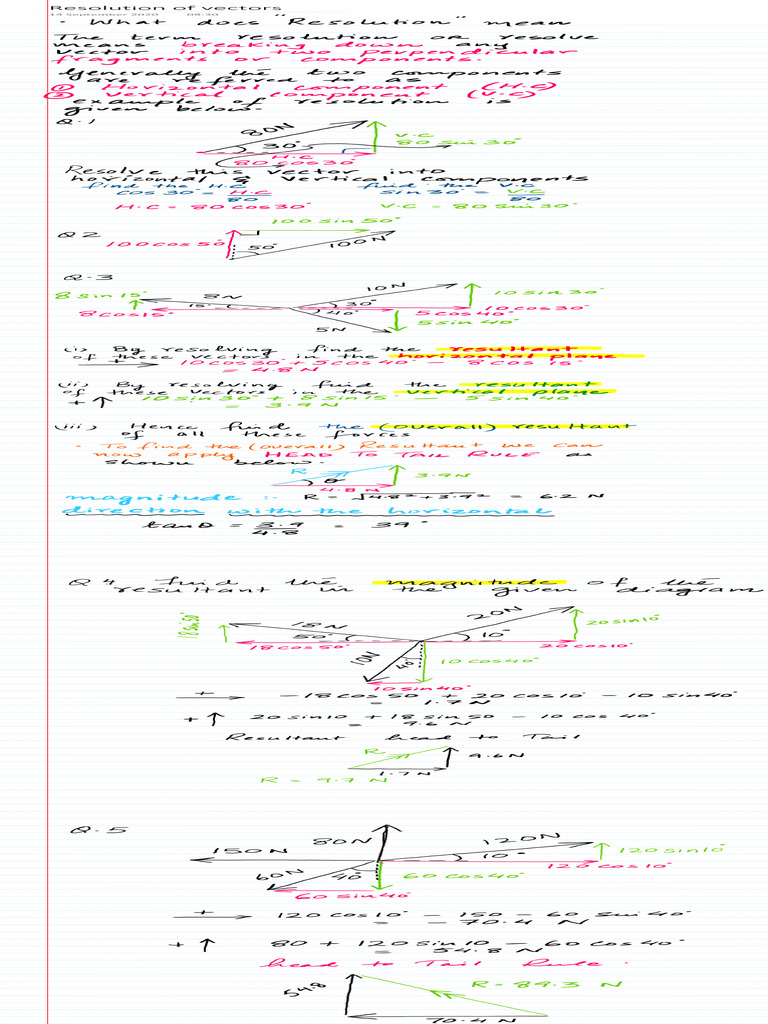 Resolution of vectors
14 September 2020 08:30
• What does "Resolution" mean
The term resolution or resolve
means breaking down any
vector into two perpendicular
fragments or components.
Generally the two components
are referred to as
① Horizontal component (H.C)
② Vertical component (V.C)
example of resolution is
given below-
Q.1
80N
30°
V.C
80 sin 30°
H.C
80 cos30°
Resolve this vector into
horizontal & vertical components
find the H.C
find the V.C
cos 30° = H.C
80
sin 30° = V.C
80
H.C = 80 cos30°
V.C = 80 sin 30°
100 sin 50°
Q 2
100cos50°
50°
100N
Q.3
8 sin 15°
8N
15°
8cos15°
10N
30°
40°
5N
10 sin 30°
10cos30°
5cos40°
5 sin 40°
(i) By resolving find the resultant
of these vectors in the horizontal plane
+ 10cos30 + 5cos40° - 8cos 15°
= 4.8N
(ii) By resolving find the resultant
of these vectors in the vertical plane
+ 10 sin 30° + 8 sin 15° - 5 sin 40°
= 3.9N
(iii) Hence find the (overall) resultant
of all these forces
• To find the (overall) Resultant we can
now apply HEAD TO TAIL RULE as
shown below.
R
θ
3.9N
4.8N
magnitude :- R = √4.8² + 3.9² = 6.2 N
direction with the horizontal
tanθ = 3.9 = 39°
4.8
Q 4 find the magnitude of the
resultant in the given diagram
18 sin 50
18N
50°
18cos50°
20N
10°
20 sin 10°
20 cos10°
10N
40°
10 cos40°
10 sin 40°
+ -18 cos 50 + 20 cos10° - 10 sin40°
= 1.7N
+ 20 sin10 + 18 sin 50 - 10 cos 40°
= 9.6 N
Resultant head to Tail
R
9.6N
1.7N
R = 9.7 N
Q.5
80N
150N
120N
10°
120 sin10°
120 cos10°
60N
40°
60 cos40°
60 sin40°
+ 120 cos10° - 150 - 60 sin 40°
= - 70.4 N
+ 80 + 120 sin 10 - 60 cos 40°
= 54.8 N
head to Tail Rule.
54.8
R = 89.3 N
70.4 N